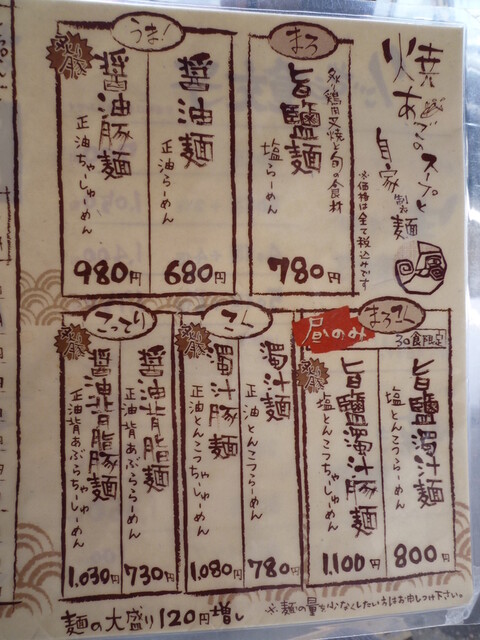 焼あごのスープと
自家製麺
※価格は全て税込みです
まろ
炙り鶏肉叉焼と旬の食材
旨鹽麺
塩らーめん
780円
うま!
醤油麺
正油らーめん
680円
醤油豚麺
正油ちゃしゅーめん
980円
まろこく
昼のみ
30食限定
旨鹽濁汁麺
塩とんこつらーめん
800円
旨鹽濁汁豚麺
塩とんこつちゃしゅーめん
1.100円
こく
濁汁麺
正油とんこつらーめん
780円
濁汁豚麺
正油とんこつちゃしゅーめん
1.080円
こってり
醤油背脂麺
正油背あぶららーめん
730円
醤油背脂豚麺
正油背あぶらちゃーしゅーめん
1.030円
麺の大盛り120円増し
※麺の量を少なくしたい方はお申しつけ下さい。